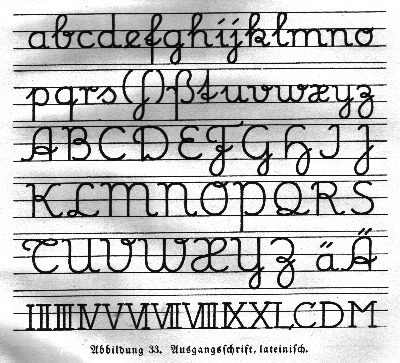 abcdefghijklmno
pqrs(ſ)ßtuvwxyz
ABCDEFGHIJ
KLMNOPQRS
TUVWXYZ äÄ
I II III IV V VI VII VIII IX X L C D M
Abbildung 33. Ausgangsſchrift, lateiniſch.